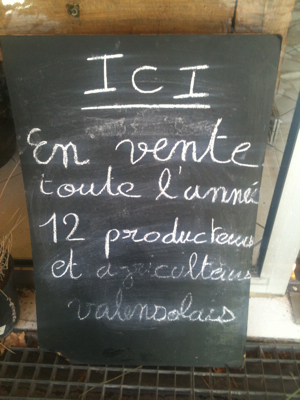 ICI
En vente
toute l'année
12 producteurs
et agriculteurs
valensolais